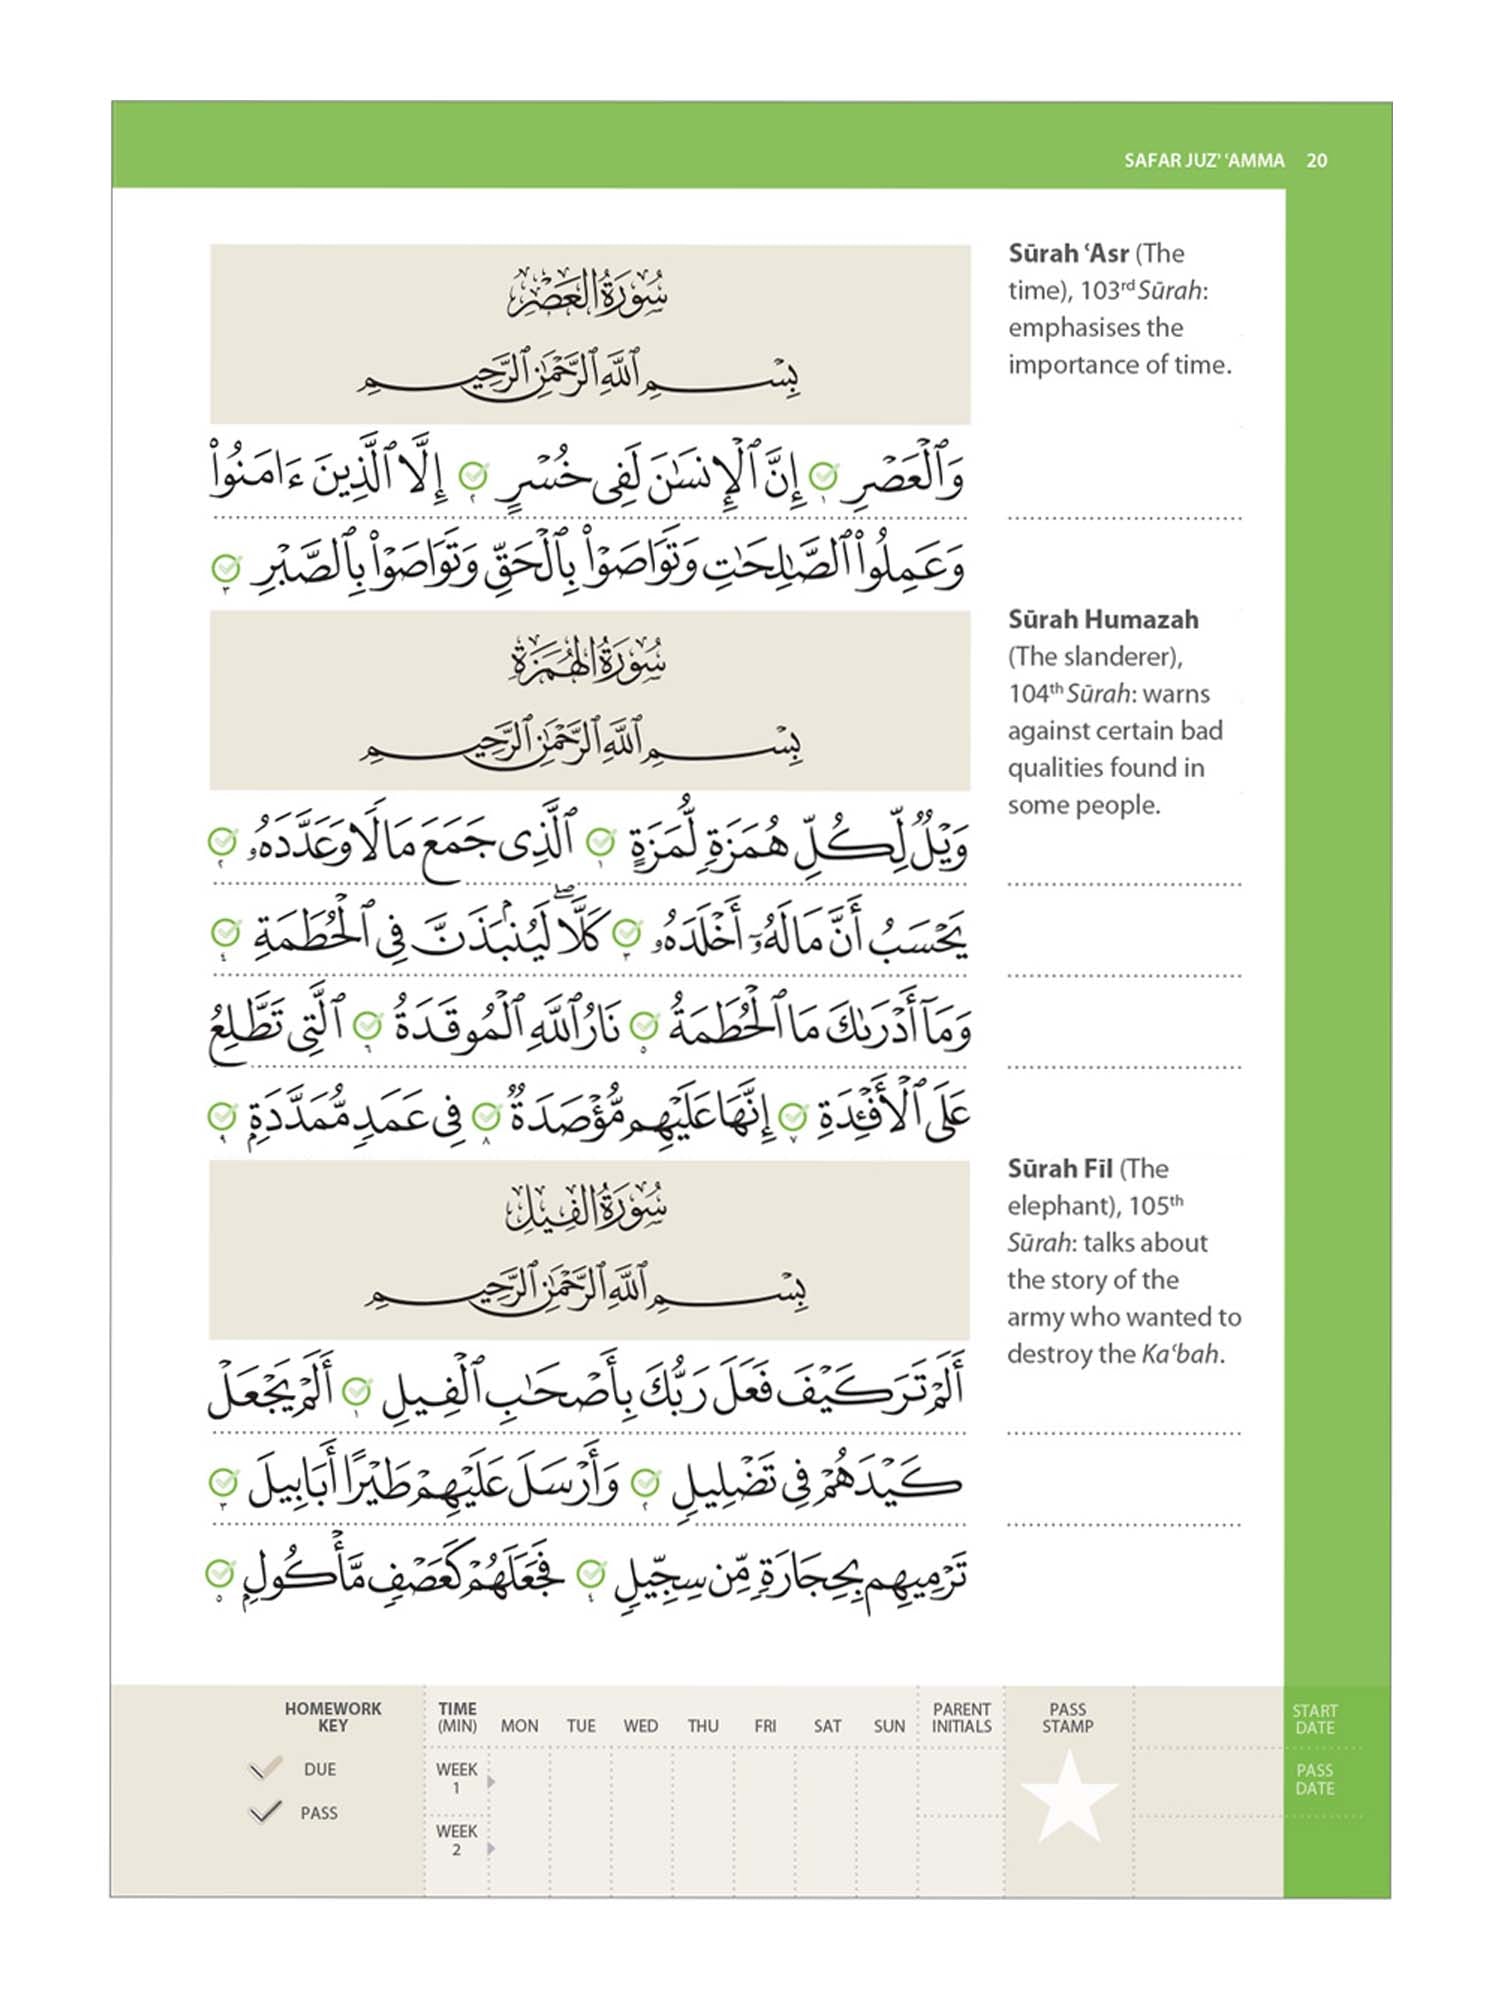 SAFAR JUZ' ʿAMMA 20
سُورَةُ الْعَصْرِ
بِسْمِ ٱللَّهِ ٱلرَّحْمَٰنِ ٱلرَّحِيمِ
وَٱلْعَصْرِ ١ إِنَّ ٱلْإِنسَٰنَ لَفِى خُسْرٍ ٢ إِلَّا ٱلَّذِينَ ءَامَنُوا۟
وَعَمِلُوا۟ ٱلصَّٰلِحَٰتِ وَتَوَاصَوْا۟ بِٱلْحَقِّ وَتَوَاصَوْا۟ بِٱلصَّبْرِ ٣
Sūrah ʿAsr (The
time), 103rd Sūrah:
emphasises the
importance of time.
سُورَةُ الْهُمَزَةِ
بِسْمِ ٱللَّهِ ٱلرَّحْمَٰنِ ٱلرَّحِيمِ
وَيْلٌ لِّكُلِّ هُمَزَةٍ لُّمَزَةٍ ١ ٱلَّذِى جَمَعَ مَالًا وَعَدَّدَهُۥ ٢
يَحْسَبُ أَنَّ مَالَهُۥٓ أَخْلَدَهُۥ ٣ كَلَّا ۖ لَيُنۢبَذَنَّ فِى ٱلْحُطَمَةِ ٤
وَمَآ أَدْرَىٰكَ مَا ٱلْحُطَمَةُ ٥ نَارُ ٱللَّهِ ٱلْمُوقَدَةُ ٦ ٱلَّتِى تَطَّلِعُ
عَلَى ٱلْأَفْـِٔدَةِ ٧ إِنَّهَا عَلَيْهِم مُّؤْصَدَةٌ ٨ فِى عَمَدٍ مُّمَدَّدَةٍۭ ٩
Sūrah Humazah
(The slanderer),
104th Sūrah: warns
against certain bad
qualities found in
some people.
سُورَةُ الْفِيلِ
بِسْمِ ٱللَّهِ ٱلرَّحْمَٰنِ ٱلرَّحِيمِ
أَلَمْ تَرَ كَيْفَ فَعَلَ رَبُّكَ بِأَصْحَٰبِ ٱلْفِيلِ ١ أَلَمْ يَجْعَلْ
كَيْدَهُمْ فِى تَضْلِيلٍ ٢ وَأَرْسَلَ عَلَيْهِمْ طَيْرًا أَبَابِيلَ ٣
تَرْمِيهِم بِحِجَارَةٍ مِّن سِجِّيلٍ ٤ فَجَعَلَهُمْ كَعَصْفٍ مَّأْكُولٍۭ ٥
Sūrah Fīl (The
elephant), 105th
Sūrah: talks about
the story of the
army who wanted to
destroy the Kaʿbah.
HOMEWORK
KEY
DUE
PASS
TIME
(MIN) MON TUE WED THU FRI SAT SUN
WEEK
1
WEEK
2
PARENT
INITIALS
PASS
STAMP
START
DATE
PASS
DATE